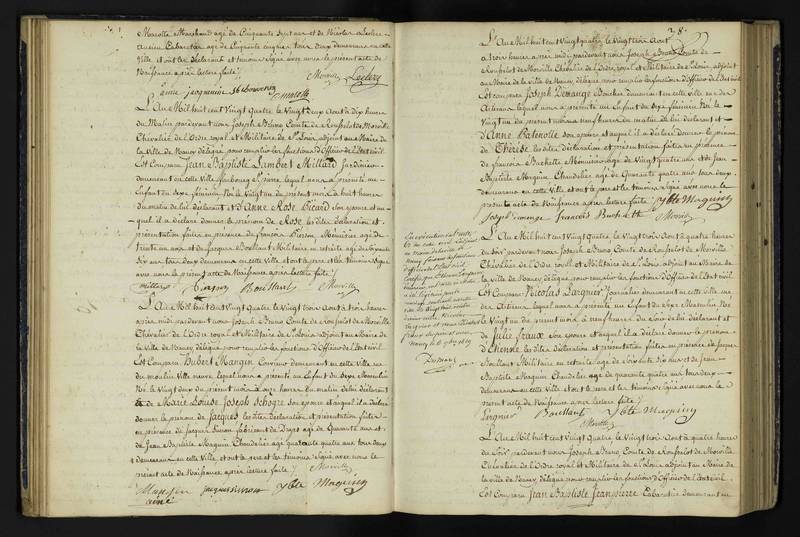 Marotte Marchand agé de Cinquante Sept ans et de Nicolas Leclerc
ancien Cabaretier agé de Cinquante cinq ans tous deux demeurans en cette
Ville et ont les déclarant et temoins signé avec nous le présent acte de
Naissance après lecture faite /. Morville Leclerc
L'An Mil huit cent Vingt Quatre le Vingt Deux Aout à dix heures
du Matin pardevant nous Joseph Bruno Comte de Rousselot de Morville
Chevalier de L'Ordre royal et Militaire de St Louis, adjoint au Maire de
la Ville de Nancy, délégué pour remplir les fonctions d'Officier de l'Etat civil
Est Comparu Jean Baptiste Lambert Millard Jardinier
demeurant en cette Ville faubourg St Pierre lequel nous a présenté un
Enfant du sexe féminin Né le Vingt un du présent mois à huit heures
du matin de lui déclarant et d'Anne Rose Bicard son épouse et au
quel il a déclaré donner le prénom de Rose les dites déclaration et
présentation faites en présence de françois Pierson, Menuisier agé de
trente un ans et de Jacques Boullant Militaire en retraite agé de soixante
Six ans tous deux demeurans en cette Ville et ont le père et les témoins Signé
avec nous le présent acte de Naissance après lecture faite /.
Boullant Morville
L'An Mil huit cent Vingt Quatre le Vingt trois Aout à trois heures
après midi pardevant nous Joseph Bruno Comte de Rousselot de Morville
Chevalier de L'Ordre royal et Militaire de St Louis adjoint au Maire de
la Ville de Nancy, délégué pour remplir les fonctions d'Officier de l'Etat Civil
Est Comparu Hubert Mangin Couvreur demeurant en cette Ville rue
du moulin Ville neuve lequel nous a présenté un Enfant du sexe Masculin
Né le Vingt deux du présent mois à onze heures du matin de lui déclarant
et de Marie Louise Joseph son épouse et auquel il a déclaré
donner le prénom de Jacques les dites déclaration et présentation faites
en présence de Jacques Simon fabricant de Draps agé de Quarante ans et
de Jean Baptiste Maquin Chandelier agé quarante quatre ans tous deux
demeurans en cette Ville et ont le père et les témoins Signé avec nous le
présent acte de Naissance après lecture faite /. Morville
Mangin Jacques Simon Jbte Maquin
ainé
78.
L'An Mil huit cent Vingt quatre le Vingt trois Aout
à trois heures après midi pardevant nous Joseph Bruno Comte de
Rousselot de Morville Chevalier de L'Ordre royal et Militaire de St Louis, adjoint
au Maire de la Ville de Nancy, délégué pour remplir les fonctions d'Officier de l'Etat Civil
Est comparu Joseph Demange Boucher demeurant en cette Ville rue des
Artisans lequel nous a présenté un Enfant du sexe féminin Né le
Vingt un du présent mois à neuf heures du matin de lui déclarant et
d'Anne son épouse et auquel il a déclaré donner le prénom
de Thérèse les dites déclaration et présentation faites en présence
de françois Menuisier agé de Vingt quatre ans et de Jean
Baptiste Maquin Chandelier agé de Quarante Quatre ans tous deux
demeurans en cette Ville et ont le père et les témoins signé avec nous le
présent acte de Naissance après lecture faite /. Jbte Maquin
Joseph Demange François Morville
L'An Mil huit cent Vingt quatre le Vingt trois Aout à quatre heures
du Soir pardevant nous Joseph Bruno Comte de Rousselot de Morville
Chevalier de L'Ordre royal et Militaire de St Louis, adjoint au Maire de
la Ville de Nancy, délégué pour remplir les fonctions d'Officier de l'Etat Civil
Est Comparu Nicolas Largnier Journalier demeurant en cette Ville rue
des Artisans lequel nous a présenté un Enfant du sexe Masculin Né
le Vingt du présent mois à neuf heures du Soir de lui déclarant et
de Julie son épouse et auquel il a déclaré donner le prénom
d'Etienne les dites déclaration et présentation faites en présence de Jacques
Boullant Militaire en retraite agé de soixante six ans et de Jean
Baptiste Maquin Chandelier agé de quarante quatre ans tous deux
demeurans en cette Ville et ont le père et les témoins signé avec nous le
présent acte de Naissance après lecture faite /.
Boullant Jbte Maquin
Morville
L'An Mil huit cent Vingt Quatre le Vingt trois Aout à quatre heures
du Soir pardevant nous Joseph Bruno Comte de Rousselot de Morville
Chevalier de L'Ordre royal et Militaire de St Louis adjoint au Maire de
la Ville de Nancy, délégué pour remplir les fonctions d'Officier de l'Etat Civil
Est Comparu Jean Baptiste Jeanpierre Cabaretier demeurant en